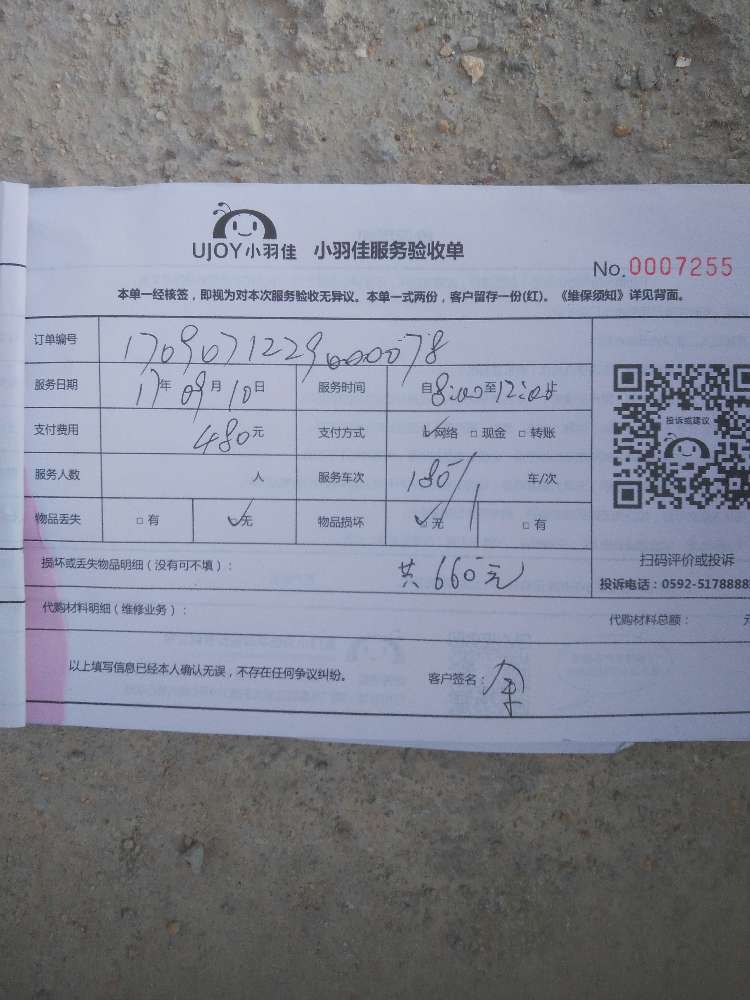 UJOY小羽佳 小羽佳服务验收单
No.0007255
本单一经核签，即视为对本次服务验收无异议。本单一式两份，客户留存一份(红)。《维保须知》详见背面。
订单编号 1709071229000078
服务日期 17年 09月 10日 服务时间 自8:00至12:00止
支付费用 480元 支付方式 ☑网络 □现金 □转账
投诉或建议
服务人数 人 服务车次 180/1 车/次
物品丢失 □有 ☑无 物品损坏 ☑无 □有
扫码评价或投诉
损坏或丢失物品明细（没有可不填）： 共660元
投诉电话：0592-5178888
代购材料明细（维修业务）： 代购材料总额： 元
以上填写信息已经本人确认无误，不存在任何争议纠纷。 客户签名：